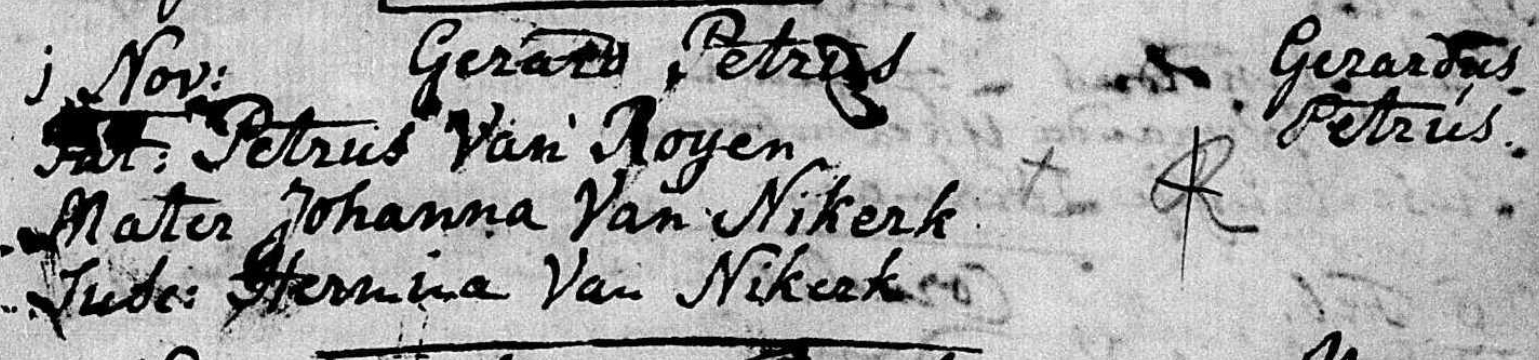 j Nov: Gerard Petrus Gerardus
Pat: Petrus Van Royen Petrus.
Mater Johanna Van Nikerk
Susc: Hermina Van Nikerk